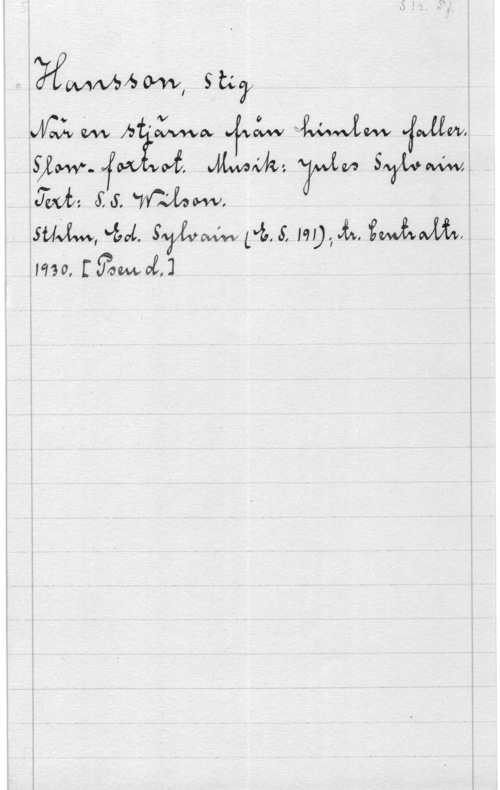 Hansson, Stig
När en stjärna från himlen faller.
Slow-foxtrot. Musik: Jules Sylvain.
Text: S.S. Wilson.
Sthlm, Ed. Sylvain (E.S. 191); tr. Centraltr.
1930. [Pseud.]